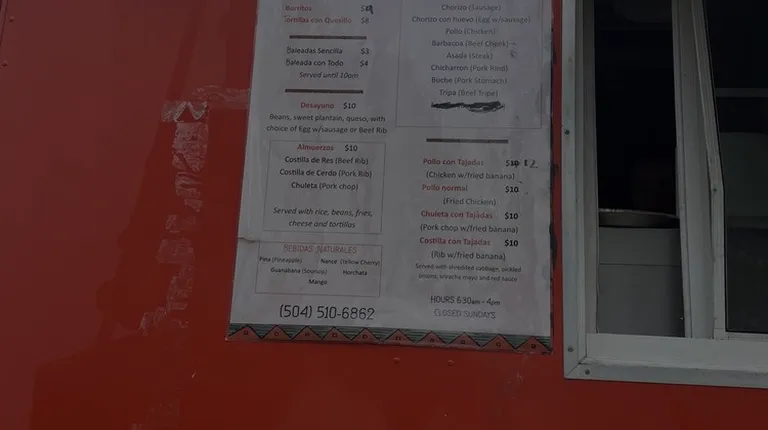 Burritos
Tortillas con Quesillo $8
Baleadas Sencilla $3
Baleada con Todo $4
Served until 10am
Desayuno $10
Beans, sweet plantain, queso, with
choice of Egg w/sausage or Beef Rib
Almuerzos $10
Costilla de Res (Beef Rib)
Costilla de Cerdo (Pork Rib)
Chuleta (Pork chop)
Served with rice, beans, fries,
cheese and tortillas
BEBIDAS NATURALES
Pina (Pineapple) Nance (Yellow Cherry)
Guanabana (Soursop) Horchata
Mango
(504) 510-6862
Chorizo (Sausage)
Chorizo con huevo (Egg w/sausage)
Pollo (Chicken)
Barbacoa (Beef Cheek)
Asada (Steak)
Chicharron (Pork Rind)
Buche (Pork Stomach)
Tripa (Beef Tripe)
Pollo con Tajadas $10 12
(Chicken w/fried banana)
Pollo normal $10
(Fried Chicken)
Chuleta con Tajadas $10
(Pork chop w/fried banana)
Costilla con Tajadas $10
(Rib w/fried banana)
Served with shredded cabbage, pickled
onions, sriracha mayo and red sauce
HOURS 630am - 4pm
CLOSED SUNDAYS